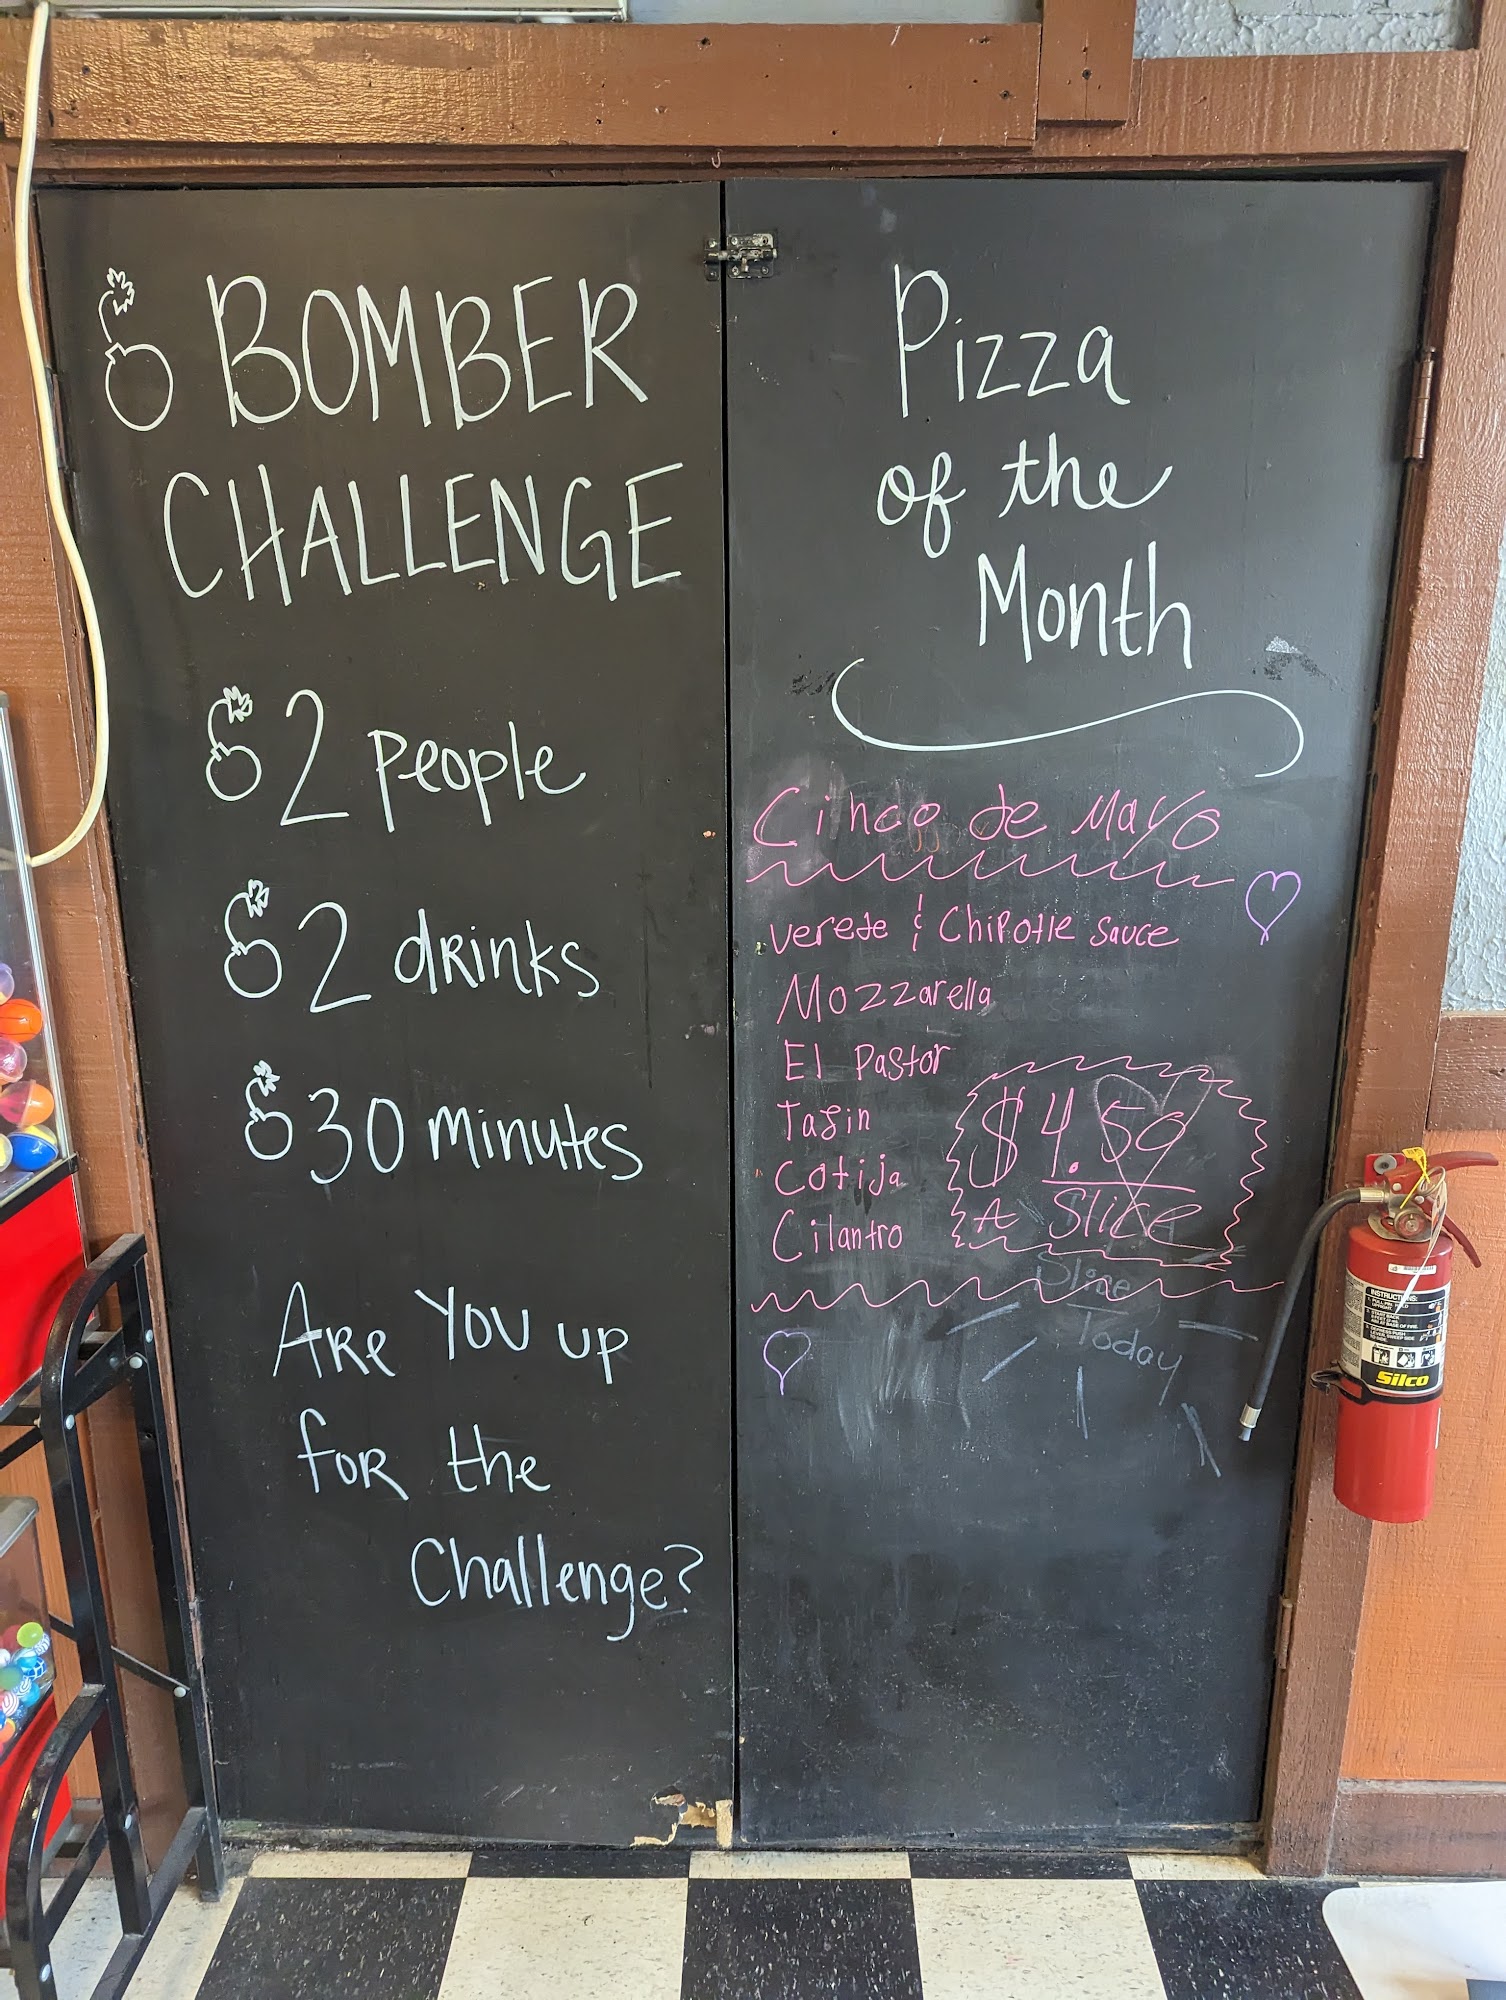 BOMBER
CHALLENGE
2 people
2 drinks
30 minutes
Are you up
for the
Challenge?
Pizza
of the
Month
Cinco de Mayo
verede & Chipotle sauce
Mozzarella
El Pastor
Tajin
Cotija
Cilantro
$4.50
A Slice
Slice
Today
INSTRUCTIONS:
Silco